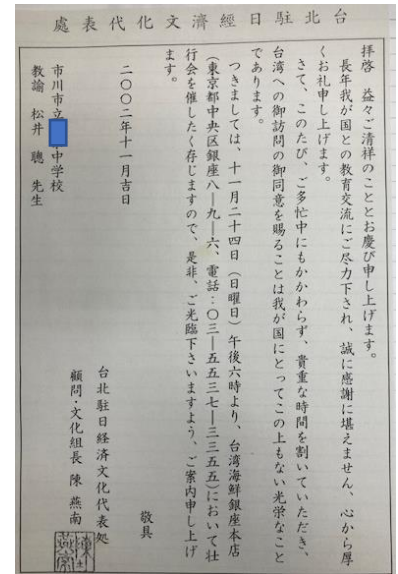 台北駐日經濟文化代表處
拝啓　益々ご清祥のこととお慶び申し上げます。
長年我が国との教育交流にご尽力下され、誠に感謝に堪えません、心から厚
くお礼申し上げます。
さて、このたび、ご多忙中にもかかわらず、貴重な時間を割いていただき、
台湾への御訪問の御同意を賜ることは我が国にとってこの上もない光栄なこと
であります。
つきましては、十一月二十四日（日曜日）午後六時より、台湾海鮮銀座本店
（東京都中央区銀座八―九―六、電話：〇三―五五三七―三三五五）において壮
行会を催したく存じますので、是非、ご光臨下さいますよう、ご案内申し上げ
ます。
敬具
二〇〇二年十一月吉日
台北駐日経済文化代表処
顧問・文化組長　陳　燕南
市川市立 中学校
教諭　松井　聰　先生